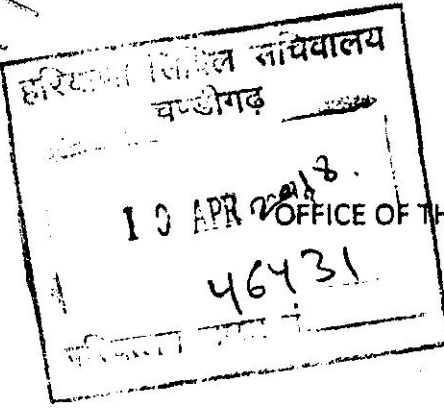 हरियाणा सिविल सचिवालय
चण्डीगढ़
10 APR 2018.
OFFICE OF TH
46431